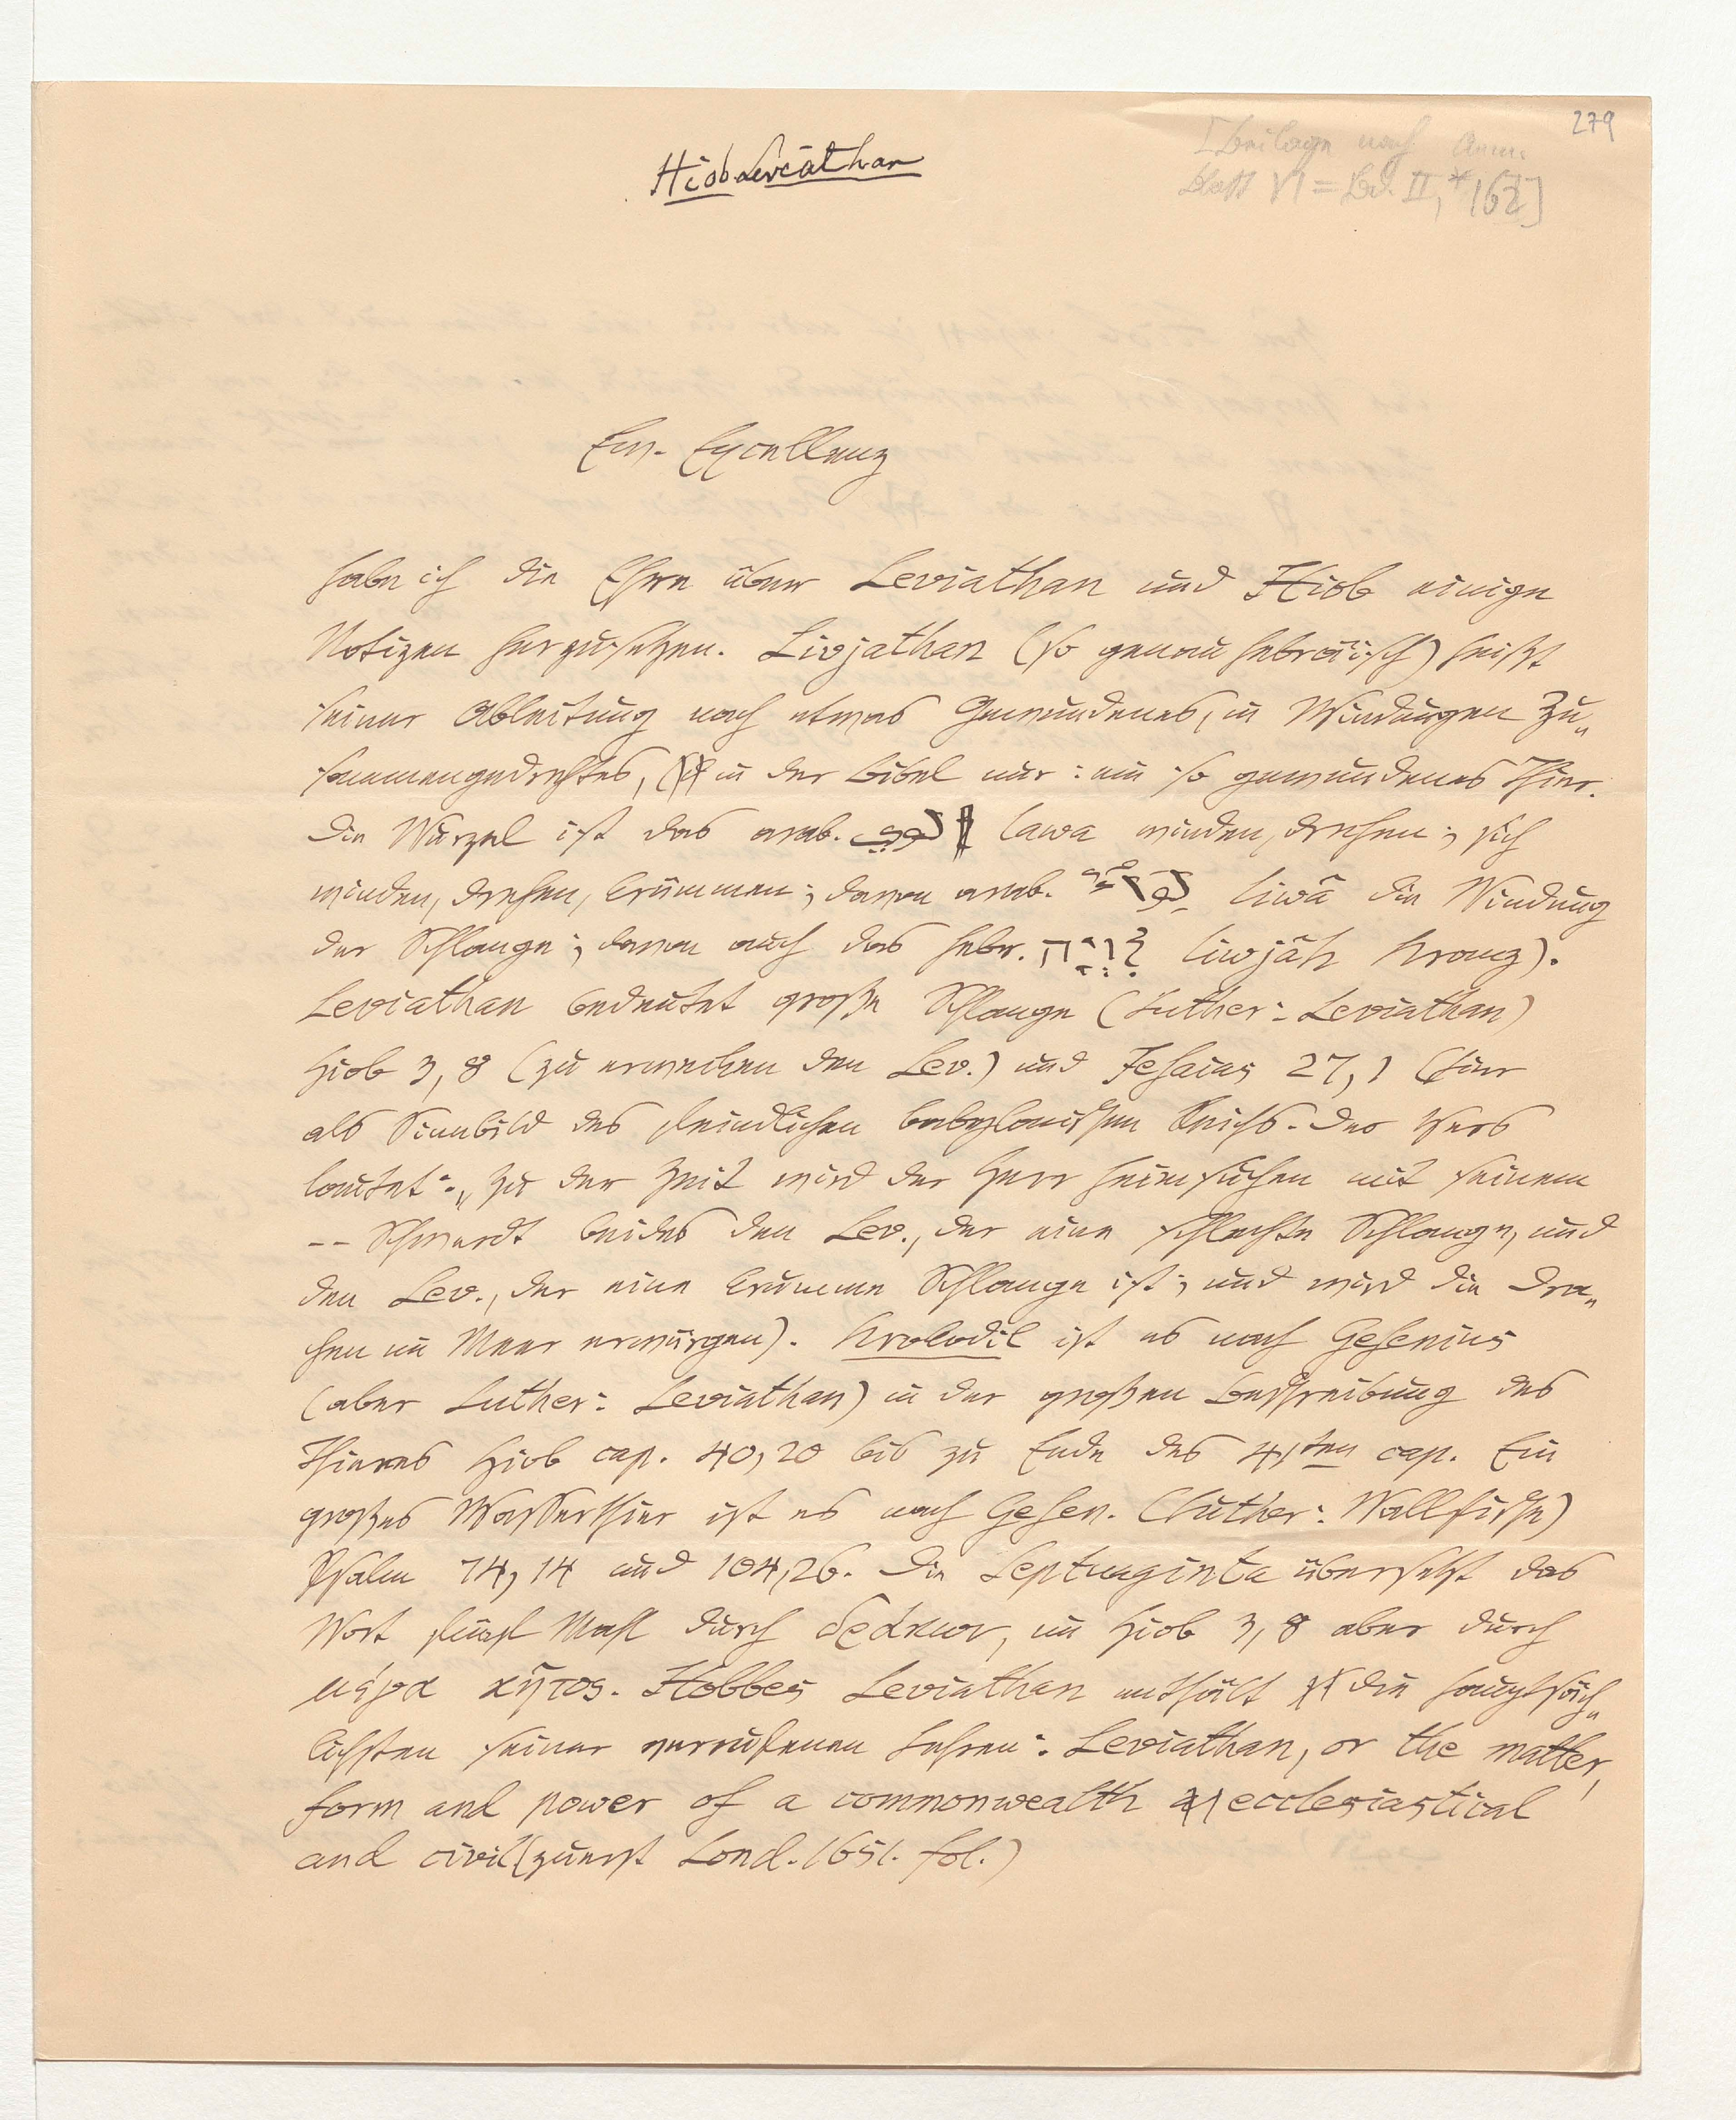 279
[Beilage nach Anm.
blatt VI = Bd. II, * 162]
Hiob Leviathan
Ew. Excellenz
habe ich die Ehre über Leviathan und Hiob einige
Notizen herzusetzen. Livjathan (so genau hebräisch) heißt
seiner Ableitung nach etwas Gewundenes, in Windungen Zu„
sammengedrehtes, (in der Bibel nur: ein so gewundenes Thier.
Die Wurzel ist das arab. لوى lawa winden, drehen; sich
winden, drehen, krümmen; davon arab. لِوَاءٌ liwâ die Windung
der Schlange; davon auch das hebr. לִוְיָה liwjâh Kranz).
Leviathan bedeutet große Schlange (Luther: Leviathan)
Hiob 3, 8 (zu erwecken den Lev.) und Jesaias 27, 1 (hier
als Sinnbild des feindlichen babylonischen Reichs. Der Vers
lautet: „Zu der Zeit wird der Herr heimsuchen mit seinem
-- Schwerdt beides den Lev., der eine schlechte Schlange, und
den Lev., der eine krumme Schlange ist; und wird die Dra„
chen im Meer erwürgen). Krokodil ist es nach Gesenius
(aber Luther: Leviathan) in der großen Beschreibung des
Thieres Hiob cap. 40, 20 bis zu Ende des 41ten cap. Ein
großes Wasserthier ist es nach Gesen. (Luther: Wallfische)
Psalm 74, 14 und 104, 26. Die Septuaginta übersetzt das
Wort fünf Mahl durch δράκων, in Hiob 3, 8 aber durch
μέγα κῆτος. Hobbes Leviathan enthält die hauptsäch„
lichsten seiner verrufenen Lehren: Leviathan, or the matter,
form and power of a commonwealth ecclesiastical
and civil (zuerst Lond. 1651. fol.)